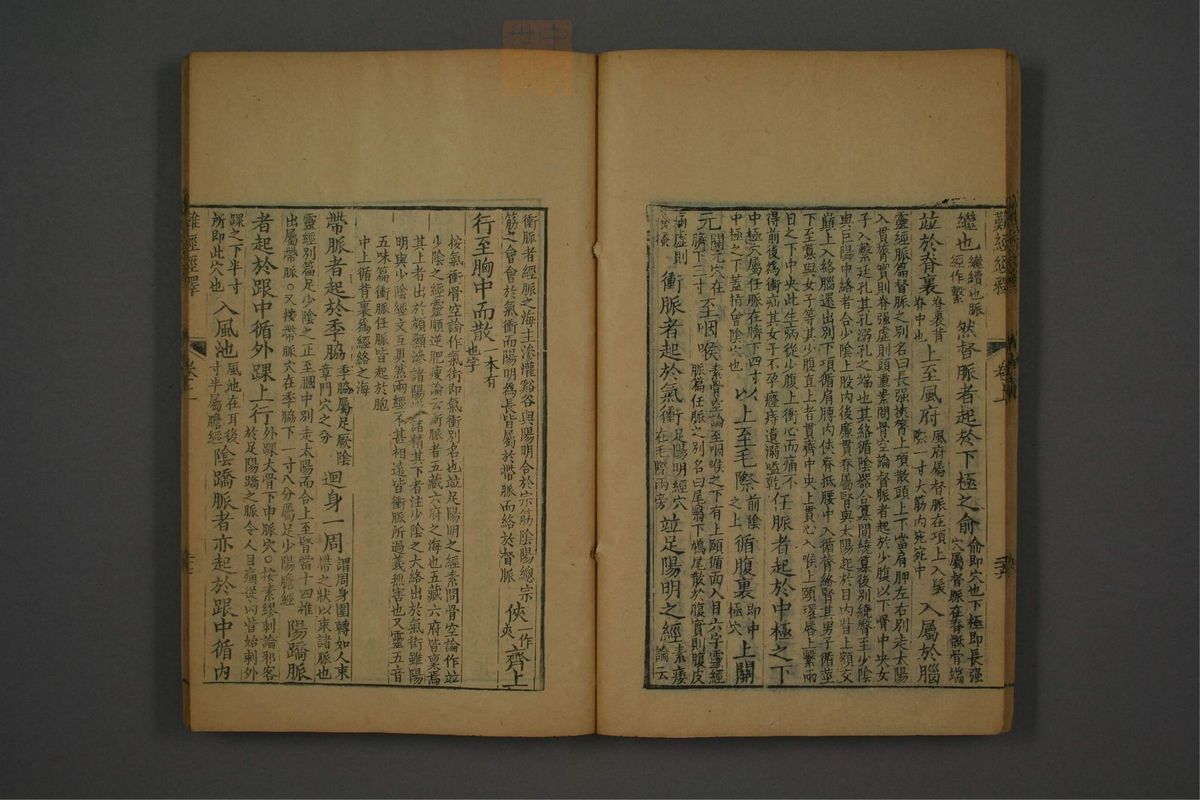 難經經釋 卷上
繼也 繼續也脈經作繫 然督脈者起於下極之俞 俞即穴也下極即長強穴屬督脈在脊骶骨端
竝於脊裏 脊裏背脊中也 上至風府 風府屬督脈在項上入髮際一寸大筋內宛宛中 入屬於腦
靈經脈篇督脈之別名曰長強挾膂上項散頭上下當肩胛左右別走太陽
入貫膂實則脊強虛則頭重素問骨空論督脈者起於少腹以下骨中央女
子入繫廷孔其孔溺孔之端也其絡循陰器合篡間繞篡後別繞臀至少陰
與巨陽中絡者合少陰上股內後廉貫脊屬腎與太陽起於目內眥上額交
巔上入絡腦還出別下項循肩膊內俠脊抵腰中入循膂絡腎其男子循莖
下至篡與女子等其少腹直上者貫齊中央上貫心入喉上頤環唇上繫兩
目之下中央此生病從少腹上衝心而痛不得前後為衝疝其女子不孕癃痔遺溺嗌乾 任脈者起於中極之下
中極穴屬任脈在臍下四寸中極之下蓋指會陰穴也 以上至毛際 前陰之上 循腹裏 即中極穴 上關
元 關元穴在臍下三寸 至咽喉 素骨空論至咽喉之下有上頤循面入目六字靈經脈篇任脈之別名曰尾翳下鳩尾散於腹實則腹皮
痛虛則 衝脈者起於氣衝 足陽明經穴在毛際兩旁 竝足陽明之經 素痿論云
衝脈者經脈之海主滲灌谿谷與陽明合於宗筋陰陽總宗筋之會會於氣衝而陽明為長皆屬於帶脈而絡於督脈 俠 一作夾 齊上
行至胸中而散 一本有也字
按氣衝骨空論作氣街即氣衝別名也竝足陽明之經素問骨空論作竝
少陰之經靈順逆肥瘦論云衝脈者五藏六府之海也五藏六府皆稟焉
其上者出於頏顙滲諸陽諸精其下者注少陰之大絡出於氣街雖陽
明與少陰經文互異然兩經不甚相遠皆衝脈所過義無害也又靈五音
五味篇衝脈任脈皆起於胞
中上循背裏為經絡之海
帶脈者起於季脇 季脇屬足厥陰章門穴之分 迴身一周 謂周身圍轉如人束帶之狀以束諸脈也
靈經別篇足少陰之正至膕中別走太陽而合上至腎當十四椎出屬帶脈○又按帶脈穴在季脇下一寸八分屬足少陽膽經 陽蹻脈
者起於跟中循外踝上行 外踝大骨下申脈穴○按素繆刺論邪客於足陽蹻之脈令人目痛從內眥始刺外
踝之下半寸所即此穴也 入風池 風池在耳後寸半屬膽經 陰蹻脈者亦起於跟中循內
難經經釋 卷上